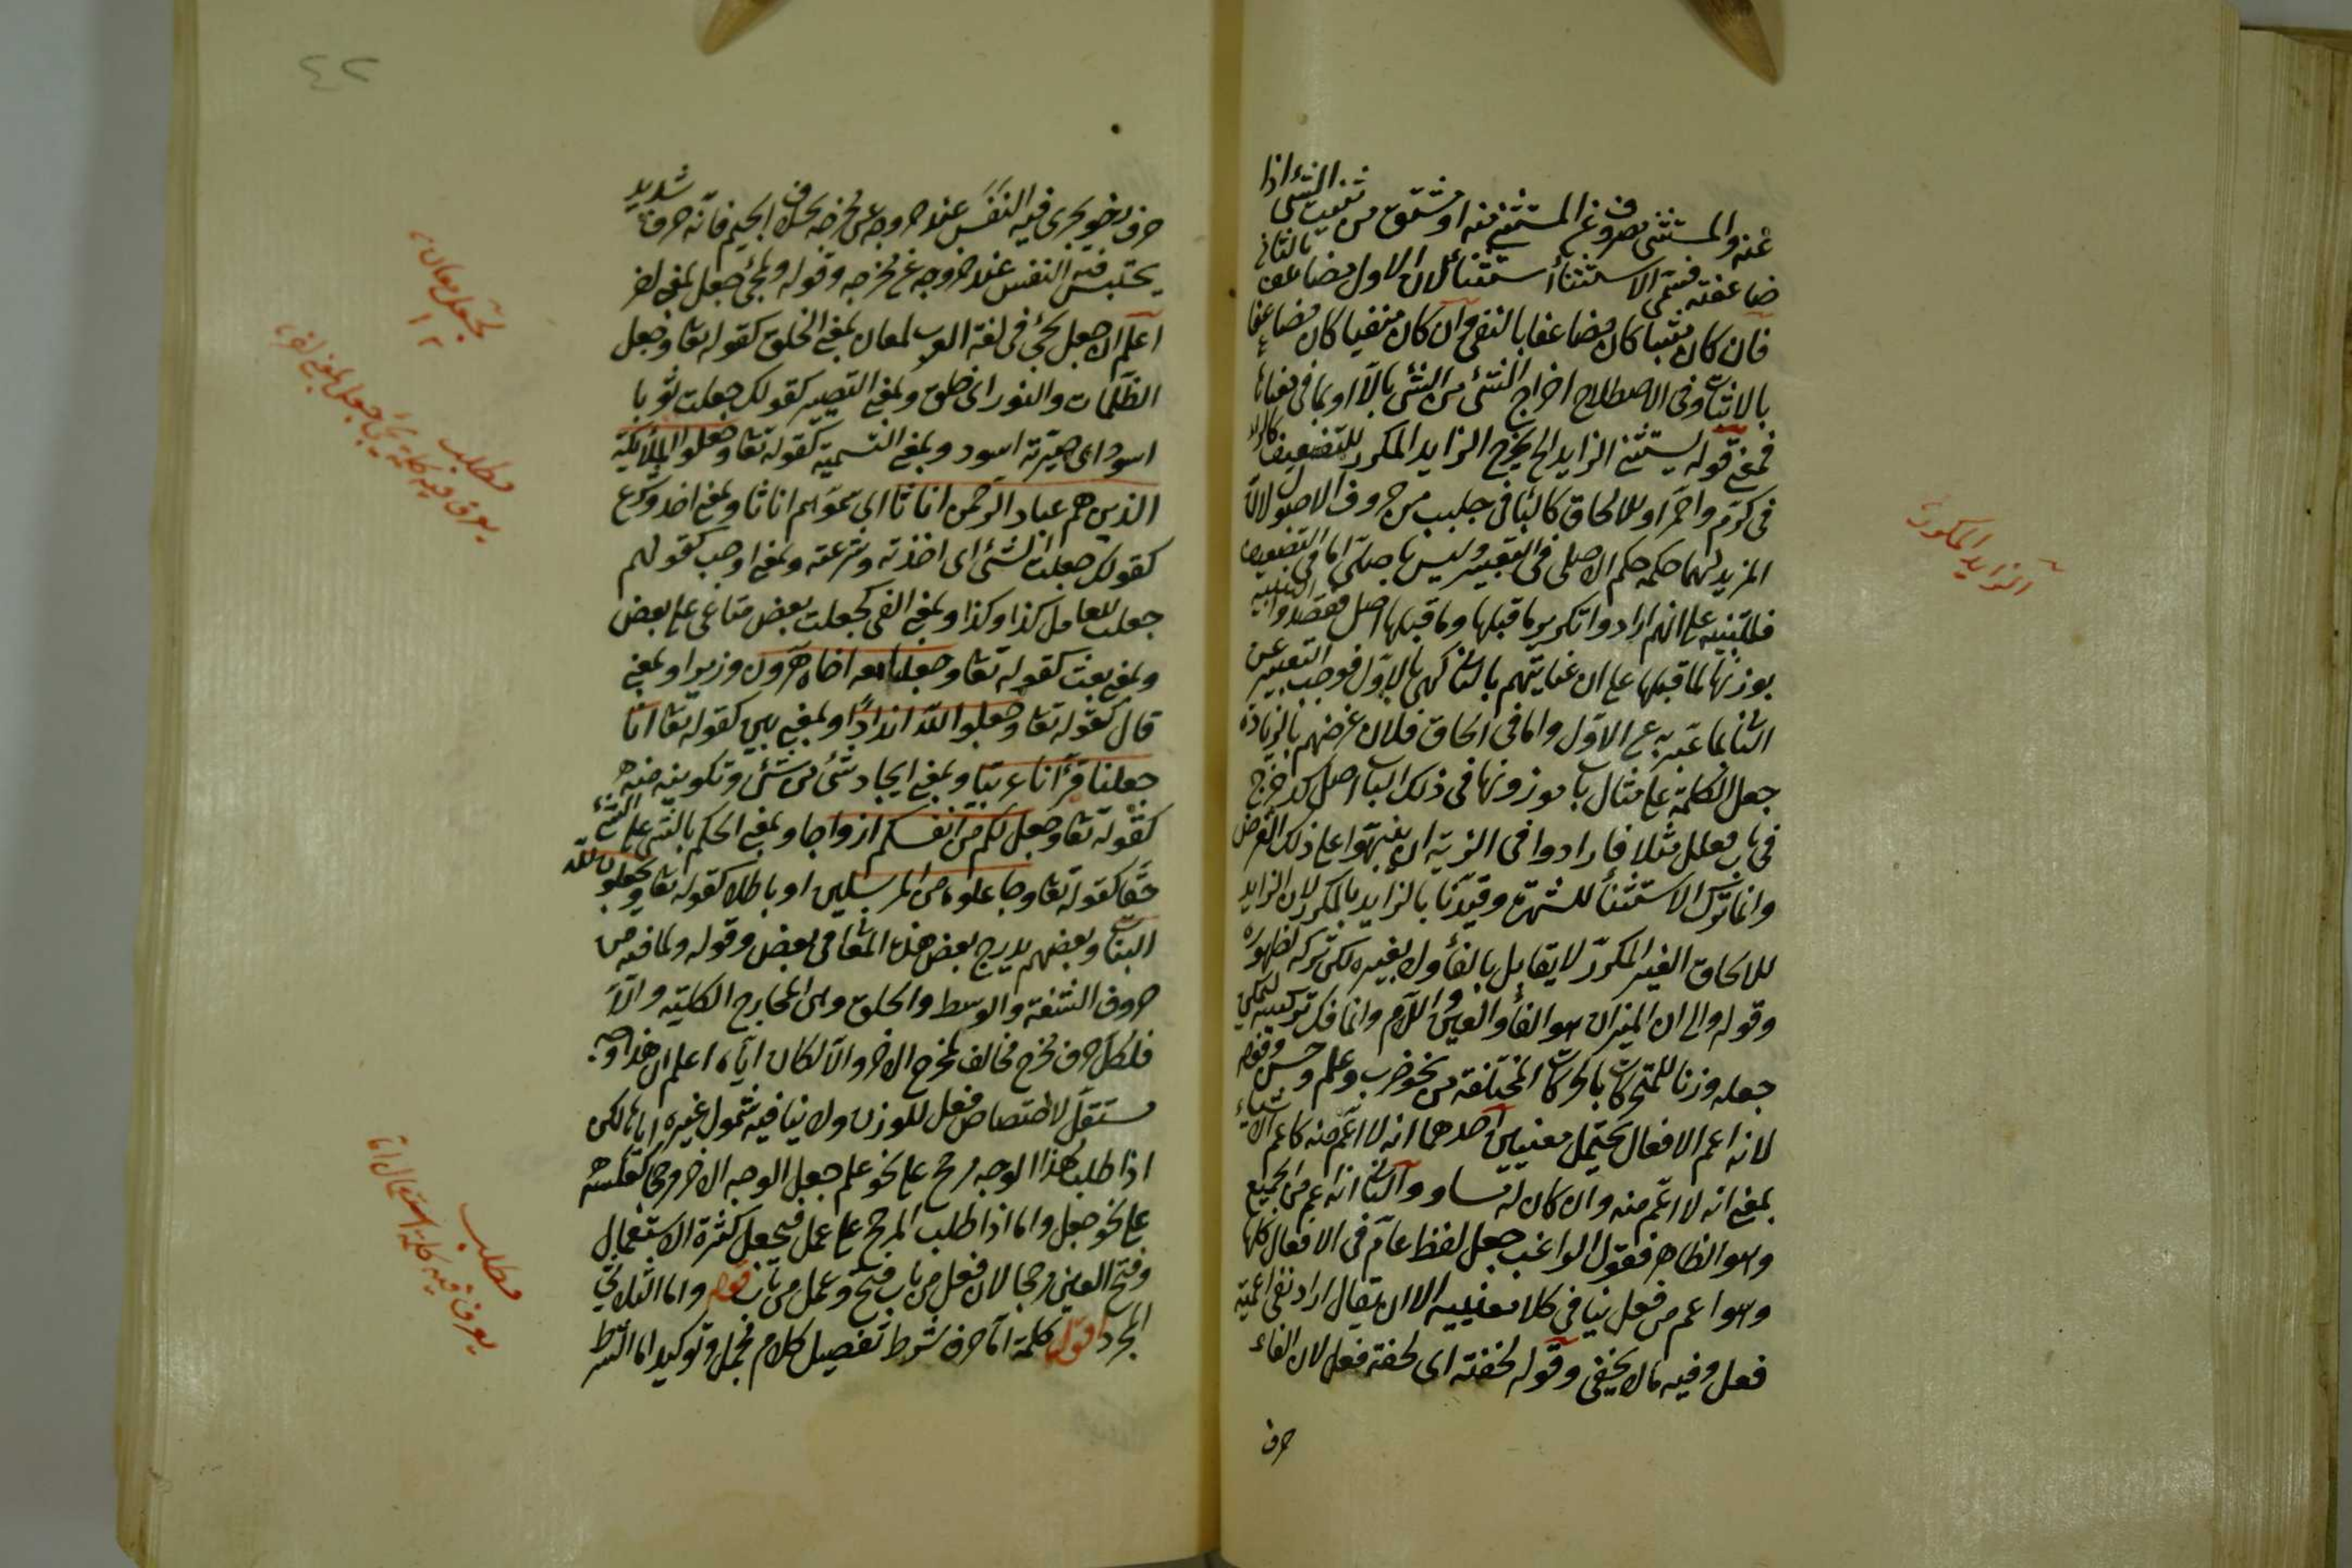 عنه والمستثنى مصروف عن المستثنى منه او مشتق من ثنيت الشئ اذا
ضاعفته فسمى الاستثناء استثناء لان الاول مضاعف بالثاني
فان كان مثبتا كان مضاعفا بالنفي وان كان منفيا كان مضاعفا
بالاثبات وفى الاصطلاح اخراج الشئ من الشئ بالا او بما فى معناها
فمعنى قوله يستثنى الزايد الخ يخرج الزايد المكرر للتضعيف كالراء
فى كرّم واحمرّ او للالحاق كالباء فى جلبب من حروف الاصول لان
المزيد لهما حكمه حكم الاصلى فى التعبير وليس باصلى اما فى التضعيف
فللتنبيه على انهم ارادوا تكرير ما قبلها وما قبلها اصل فقصدوا التنبيه
بوزنها لما قبلها على ان عنايتهم بالثاني كهي بالاول فوجب التعبير عن
الثاني بما عبّر به عن الاوّل واما فى الحاق فلان غرضهم بالزيادة
جعل الكلمة على مثال باب موزونها فى ذلك الباب اصل كدحرج
فى باب فعلل مثلا فارادوا فى الزنة ان ينبهوا على ذلك الغرض
وانما ترك الاستثناء للشهرة وقيدنا بالزايد بالمكرر لان الزايد
للالحاق الغير المكرر لا يقابل بالفاء ولا بغيره لكن تركه لظهوره
وقوله والى ان الميزان هو الفاء والعين واللام وانما فك تركيبه ليمكن
جعله وزنا للمتحركات بالحركات المختلفة من نحو ضرب وعلم وحسن وقوله
لانه اعم الافعال يحتمل معنيين احدهما انه لا اعم منه كاعم الاشياء
بمعنى انه لا اعم منه وان كان له تساو والثاني انه اعم من الجميع
وهو الظاهر فقول الراغب جعل لفظ عام فى الافعال كلها
وهو اعم من فعل ينافى كلا معنييه الا ان يقال اراد نفى اعمية
فعل وفيه ما لا يخفى وقوله لخفته اى لخفة فعل لان الفاء
حرف
الزايد المكرر
٤٢
حرف رخو يجرى فيه النفس عند خروجه عن مخرجه بخلاف الجيم فانه حرف شديد
يحتبس فيه النفس عند خروجه عن مخرجه وقوله ولمجئ جعل لمعنى اخر
اعلم ان جعل يجئ فى لغة العرب لمعان بمعنى الخلق كقوله تعا وجعل
الظلمات والنور اى خلق وبمعنى التصيير كقولك جعلت ثوبا
اسود اى صيرته اسود وبمعنى التسمية كقوله تعا وجعلوا الملائكة
الذين هم عباد الرحمن اناثا اى سموهم اناثا وبمعنى اخذ وشرع
كقولك جعلت الشئ اى اخذته وشرعته وبمعنى اوجب كقولهم
جعلت للعامل كذا وكذا وبمعنى القى كجعلت بعض متاعى على بعض
وبمعنى بعث كقوله تعا وجعلنا معه اخاه هرون وزيرا وبمعنى
قال كقوله تعا وجعلوا لله اندادا وبمعنى بين كقوله تعا انا
جعلنا قرآنا عربيا وبمعنى ايجاد شئ من شئ وتكوينه منه
كقوله تعا وجعل لكم من انفسكم ازواجا وبمعنى الحكم بالشئ على الشئ
حقا كقوله تعا وجاعلوه من المرسلين او باطلا كقوله تعا ويجعلون لله
البنات وبعضهم يدرج بعض هذه المعانى فى بعض وقوله ولما فيه من
حروف الشفة والوسط والحلق وهى المخارج الكلية والا
فلكل حرف مخرج مخالف لمخرج الاخر والا لكان اياه اعلم ان هذا وجه
مستقل لاختصاص فعل للوزن ولا ينافيه شمول غيره اياها لكن
اذا طلب هذا الوجه مرجح على نحو علم جعل الوجه الاخر مرجحا كعكسه
على نحو جعل واما اذا طلب المرجح على عمل فيجعل كثرة الاستعمال
وفتح العين مرجحا لان فعل من باب فتح وعمل من باب قوله واما الثلاثى
المجرد اقول كلمة اما حرف شرط تفصيل كلام مجمل وتوكيد اما الشرط
لجعل معان
١٢
مطلب
يعرف فيه كلمة يجئ جعل بمعنى اخر
مطلب
يعرف فيه كلمة استعمال اما